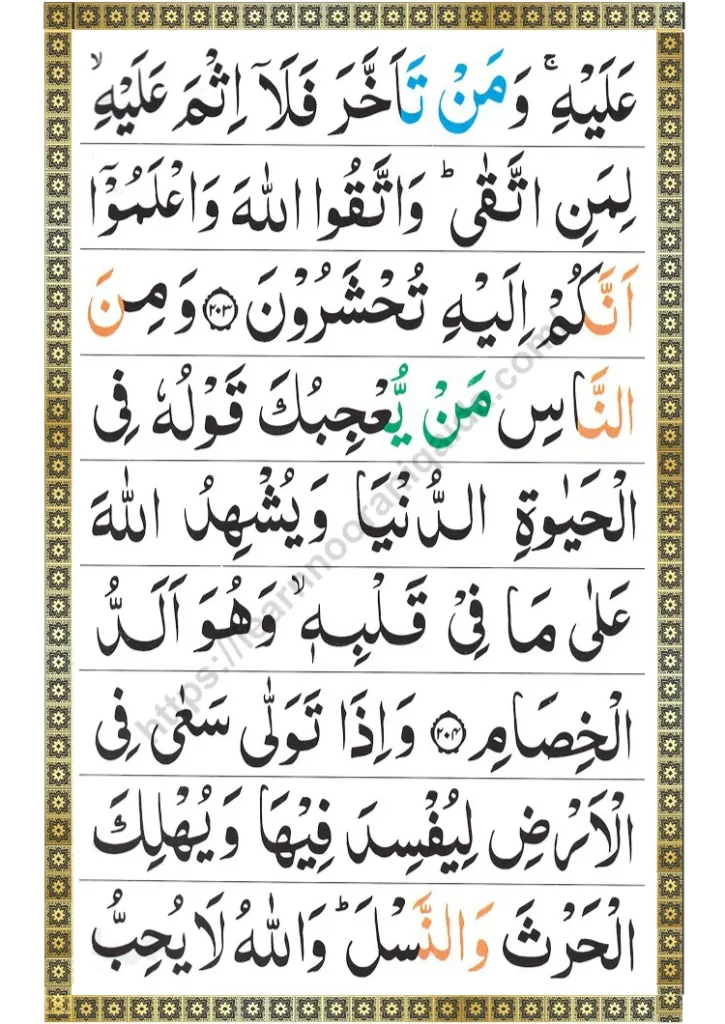 عَلَيْهِ ۚ وَمَنْ تَاَخَّرَ فَلَاۤ اِثْمَ عَلَيْهِ ۙ
لِمَنِ اتَّقٰى ؕ وَاتَّقُوا اللّٰهَ وَاعْلَمُوْۤا
اَنَّكُمْ اِلَيْهِ تُحْشَرُوْنَ ﴿۲۰۳﴾ وَمِنَ
النَّاسِ مَنْ يُّعْجِبُكَ قَوْلُهٗ فِى
الْحَيٰوةِ الدُّنْيَا وَيُشْهِدُ اللّٰهَ
عَلٰى مَا فِىْ قَلْبِهٖ ۙ وَهُوَ اَلَدُّ
الْخِصَامِ ﴿۲۰۴﴾ وَاِذَا تَوَلّٰى سَعٰى فِى
الْاَرْضِ لِيُفْسِدَ فِيْهَا وَيُهْلِكَ
الْحَرْثَ وَالنَّسْلَ ؕ وَاللّٰهُ لَا يُحِبُّ
https://learnnooraniqaida.com/